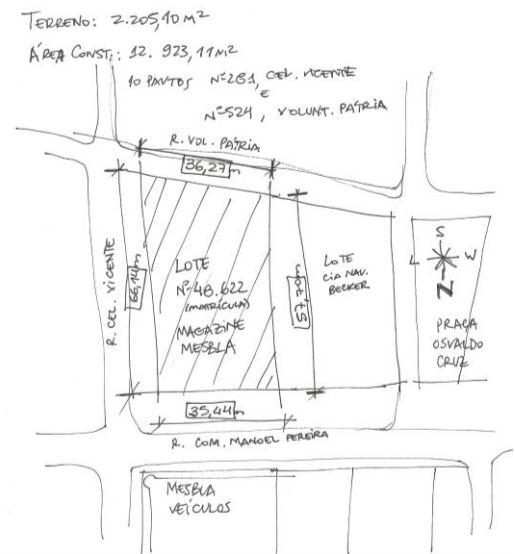 TERRENO: 2.205,10 m²
ÁREA CONST.: 12.923,11 m²
10 PAVTOS Nº281, CEL. VICENTE
E
Nº524, VOLUNT. PÁTRIA
R. VOL. PÁTRIA
36,27m
R. CEL. VICENTE
66,14m
LOTE
Nº-48.622
(MATRÍCULA)
MAGAZINE
MESBLA
57,70m
LOTE
CIA NAV.
BECKER
S
L W
N
PRAÇA
OSVALDO
CRUZ
35,44m
R. COM. MANOEL PEREIRA
MESBLA
VEÍCULOS